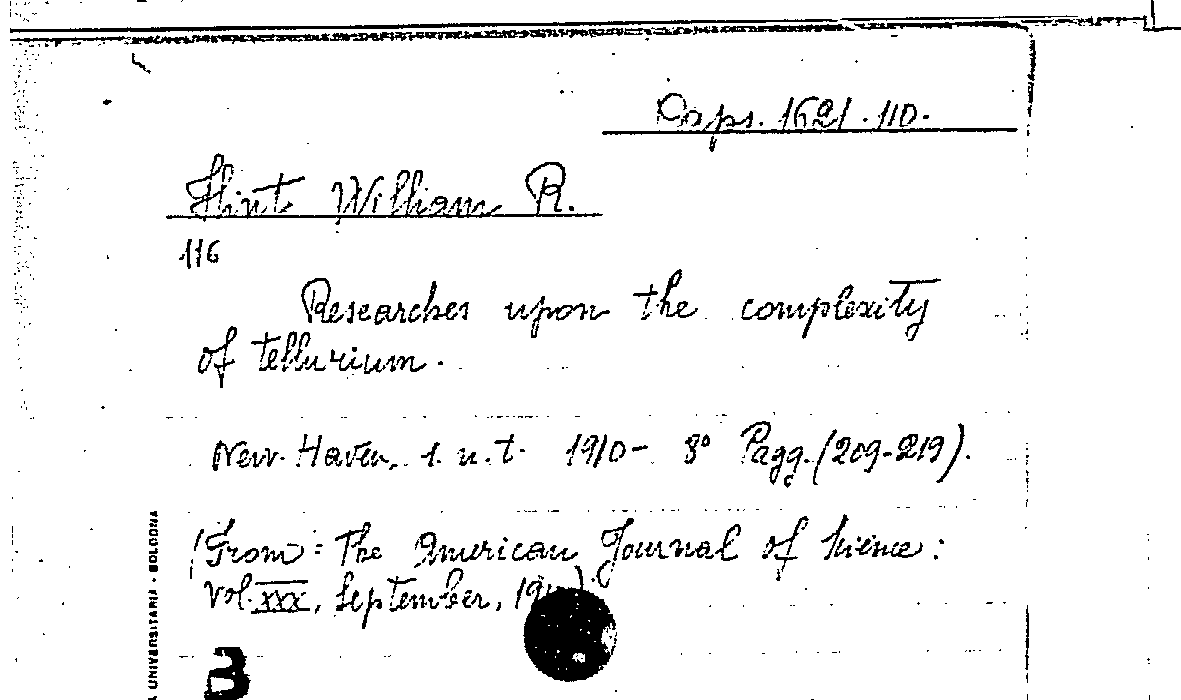 Caps. 1621.110.
Flint William R.
116
Researches upon the complexity
of tellurium.
New-Haven, s. n. t. 1910- 8° Pagg. (209-219).
(From: The American Journal of Science:
vol. XXX, September, 1910).
A UNIVERSITARIA - BOLOGNA
B